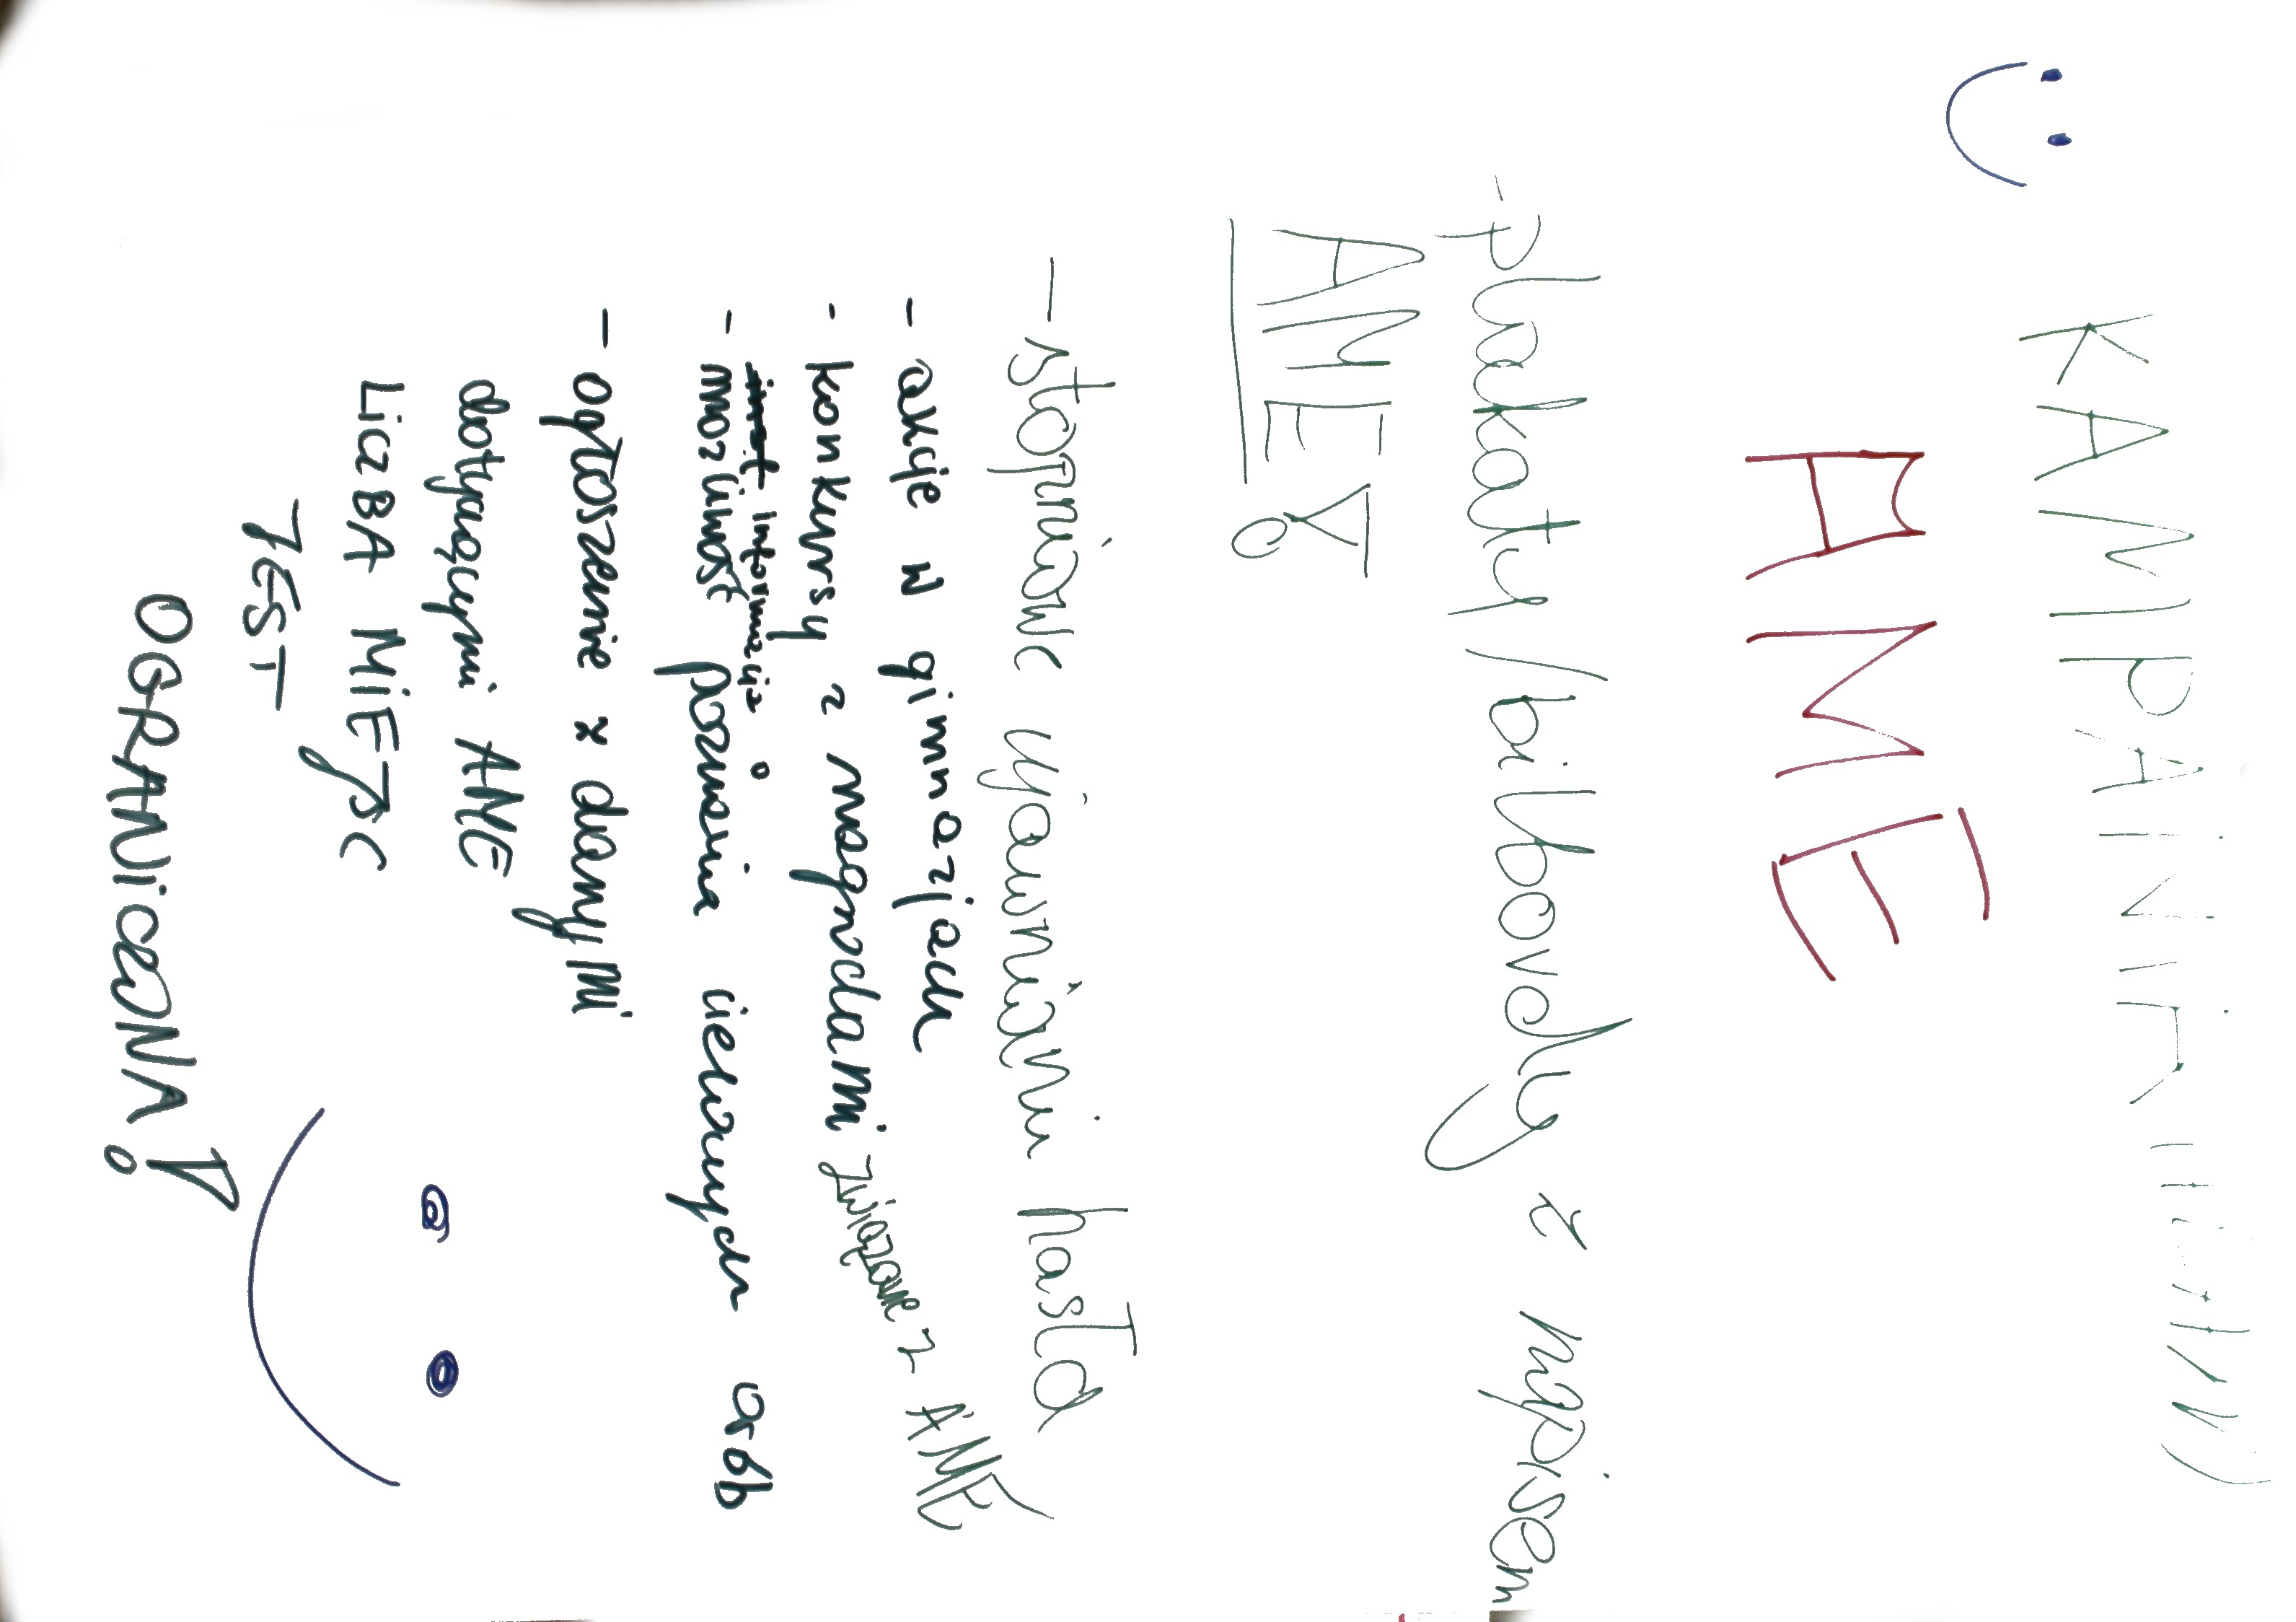 KAMPANIA
AME
- plakaty/bilboardy z napisem
AME!
- stopniowe ujawnianie hasła
- akcje w gimnazjach
- konkursy z nagrodami związane z AME
- informacja o
możliwość poznania ciekawych osób
- ogłoszenie z danymi
dotyczącymi AME
LiczBA MiEJSC
JEST
OGRANiCZONA!